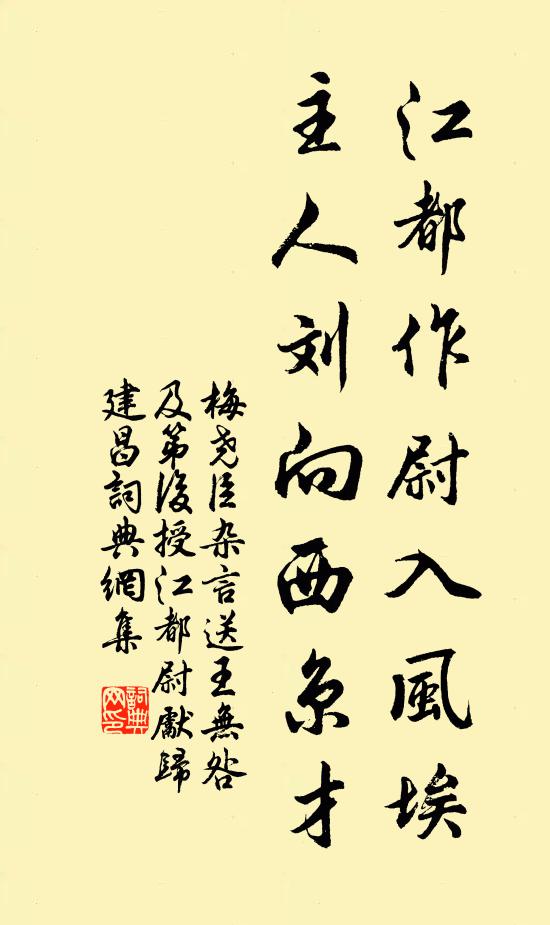 江都作尉入風埃
主人刘向西京才
梅尧臣杂言送王無咎
及第後授江都尉獻歸
建昌詞典網集
詞典
网印